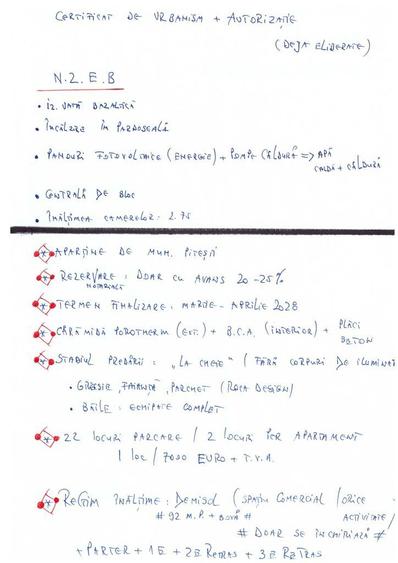 CERTIFICAT DE URBANISM + AUTORIZAȚIE
(DEJA ELIBERATE)
N.Z.E.B
• IZ. VATĂ BAZALTICĂ
• ÎNCĂLZIRE ÎN PARDOSEALĂ
• PANOURI FOTOVOLTAICE (ENERGIE) + POMPE CĂLDURĂ => APĂ
CALDĂ + CĂLDURĂ
• CENTRALĂ DE BLOC
• ÎNĂLȚIMEA CAMERELOR: 2.75
APARȚINE DE MUN. PITEȘTI
REZERVARE: DOAR CU AVANS 20-25%
NOTARIALĂ
TERMEN FINALIZARE: MARTIE - APRILIE 2028
CĂRĂMIDĂ POROTHERM (EXT.) + B.C.A. (INTERIOR) + PLĂCI
BETON
STADIUL PREDĂRII: "LA CHEIE" / FĂRĂ CORPURI DE ILUMINAT
• GRESIE, FAIANȚĂ, PARCHET (ROCA DESIGN)
• BĂILE: ECHIPATE COMPLET
22 LOCURI PARCARE / 2 LOCURI PER APARTAMENT
1 LOC / 7000 EURO + T.V.A.
REGIM ÎNĂLȚIME: DEMISOL (SPAȚIU COMERCIAL / ORICE
ACTIVITATE/
# 92 M.P. + BOXĂ #
# DOAR SE ÎNCHIRIAZĂ #
+ PARTER + 1E + 2E RETRAS + 3E RETRAS